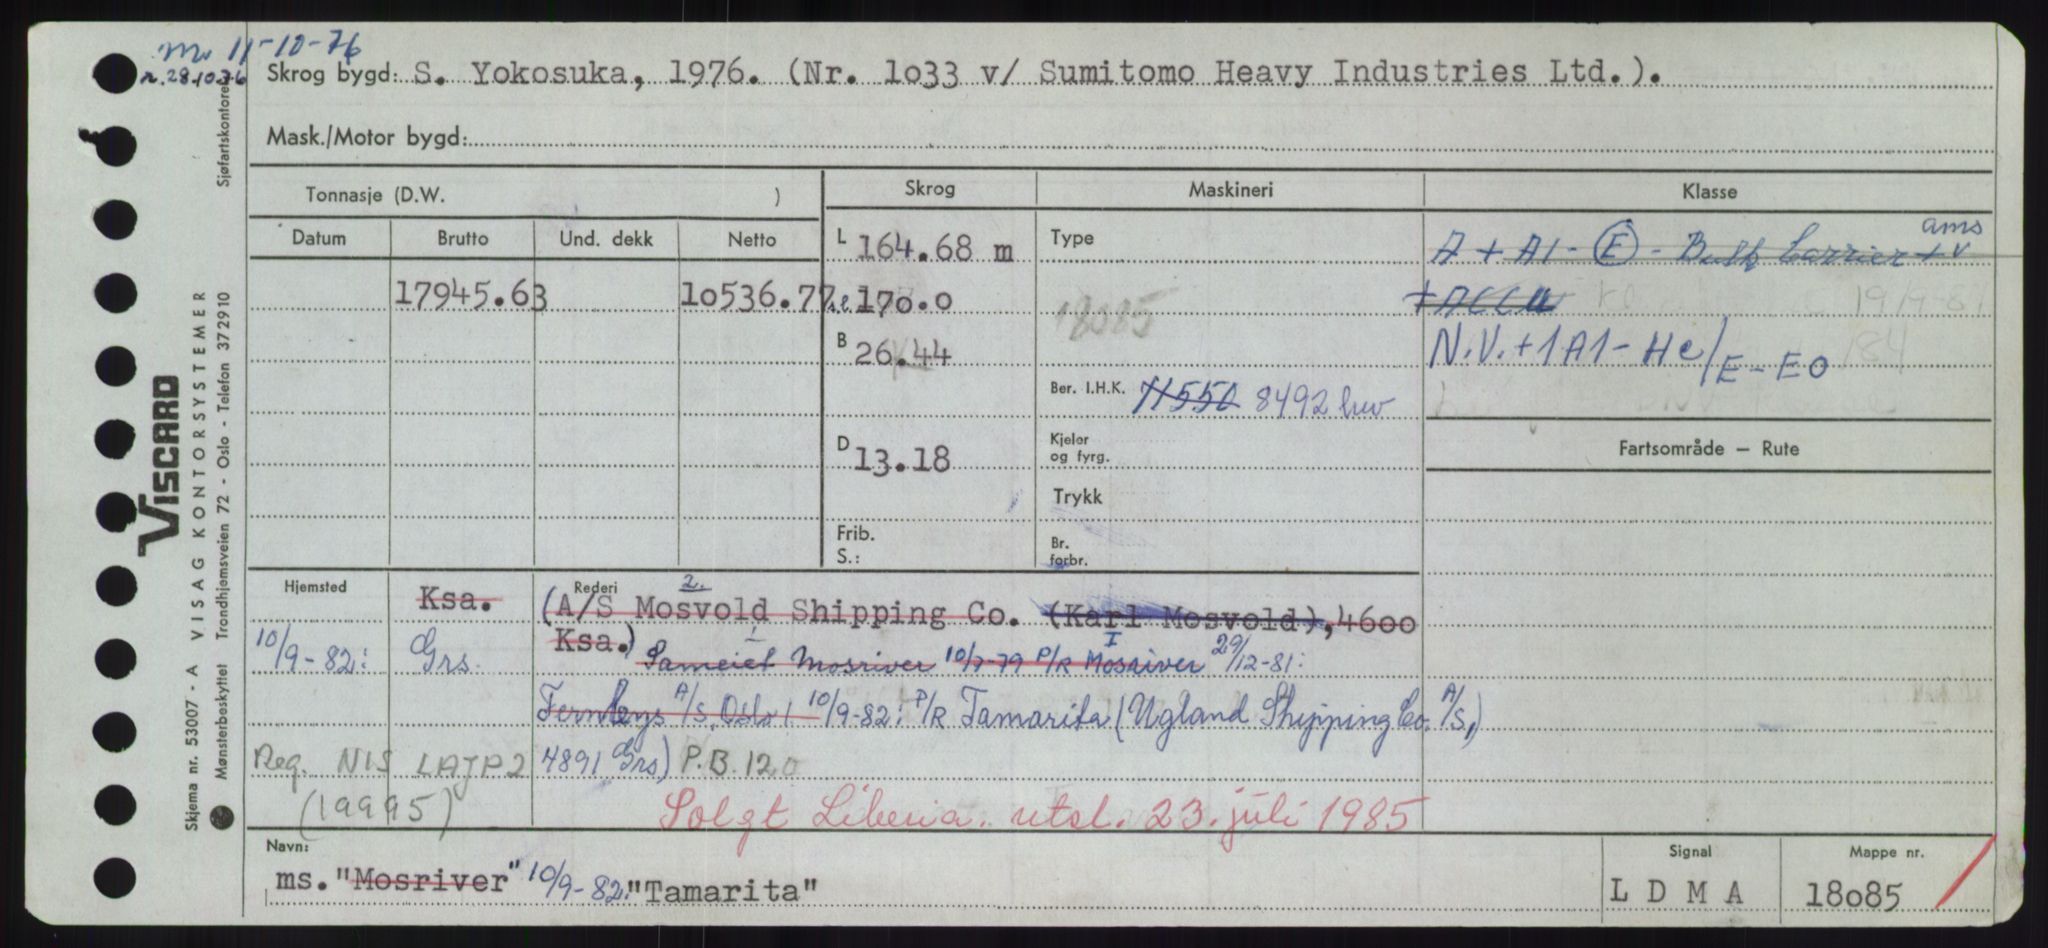 11-10-76
28.10.76
Skrog bygd: S. Yokosuka, 1976. (Nr. 1o33 v/ Sumitomo Heavy Industries Ltd.).
Mask./Motor bygd:
Tonnasje (D.W. )
Skrog
Maskineri
Klasse
Datum
Brutto
Und. dekk
Netto
L 164.68 m
Type
A + A1 - E - Bulk Carrier + v
ams
17945.63
1o536.77
170.0
18085
+ACCU
19/9-61
B 26.44
N.V. + 1A1 - He/E - EO
184
Ber. I.H.K. 11550 8492 hw
D 13.18
Kjeler og fyrg.
Fartsområde – Rute
Trykk
Frib. S.:
Br. forbr.
Hjemsted
Ksa.
Rederi
2.
(A/S Mosvold Shipping Co. (Karl Mosvold), 46oo
Ksa.) Sameiet Mosriver 10/7-79 P/R Mosriver I 29/12-81:
10/9-82: Grs.
Fernleys A/S, Oslo) 10/9-82: P/R Tamarita (Ugland Shipping Co. A/S,
4891 Grs) P.B. 120
Reg. NIS LAJP2
(19995)
Solgt Liberia. utsl. 23. juli 1985
Navn:
ms. "Mosriver" 10/9-82: "Tamarita"
Signal
L D M A
Mappe nr.
18o85
VISCARD
Skjema nr. 53007 - A VISAG KONTORSYSTEMER
Mønsterbeskyttet Trondhjemsveien 72 - Oslo - Telefon 372910
Sjøfartskontoret